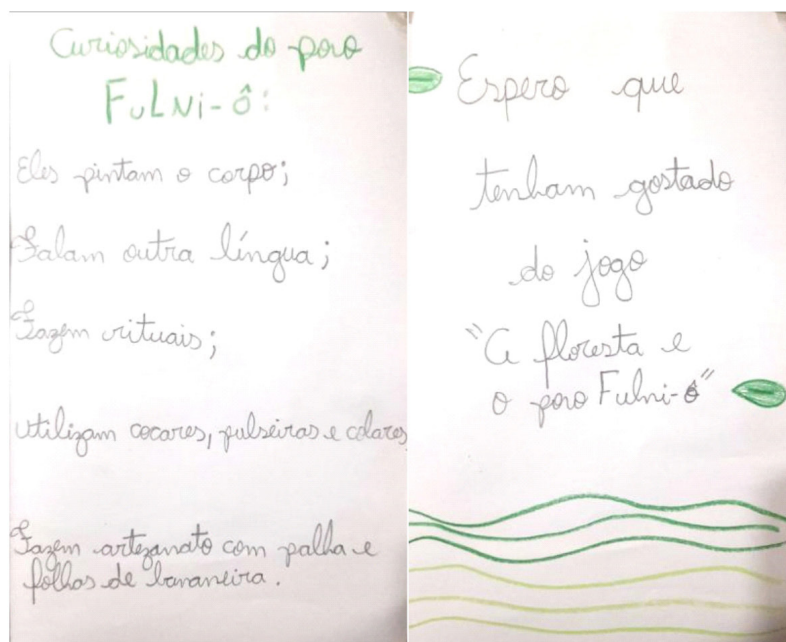 Curiosidades do povo
FuLNi-ô:
Eles pintam o corpo;
Falam outra língua;
Fazem rituais;
utilizam cocares, pulseiras e colares
Fazem artezanato com palha e
folhas de bananeira.
Espero que
tenham gostado
do jogo
"A floresta e
o povo Fulni-ô"